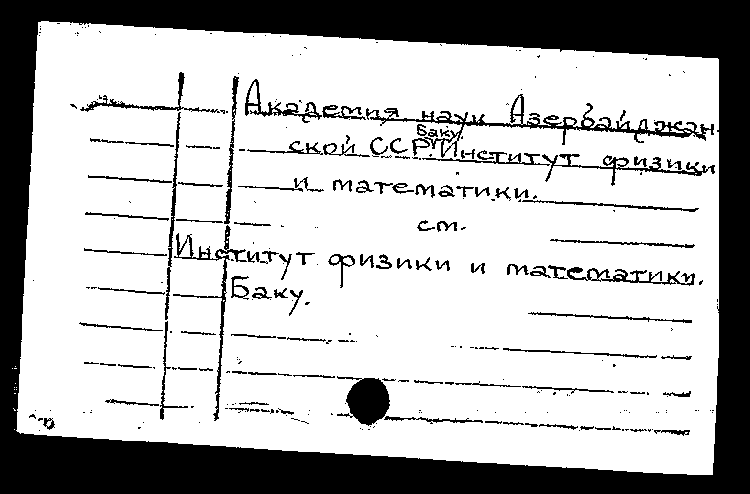 Академия наук Азербайджан-
ской ССР. Баку. Институт физики
и математики.
см.
Институт физики и математики.
Баку.